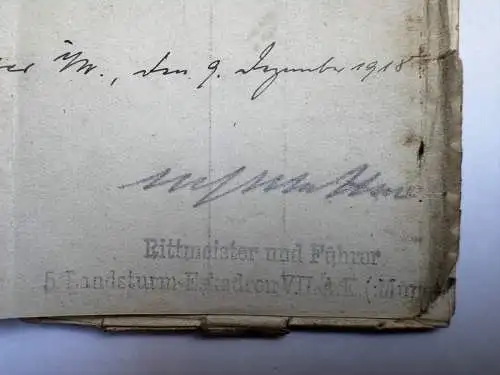 i/W., den 9. Dezember 1918
Rittmeister und Führer
5. Landsturm-Eskadron VII. A.K. (Mün